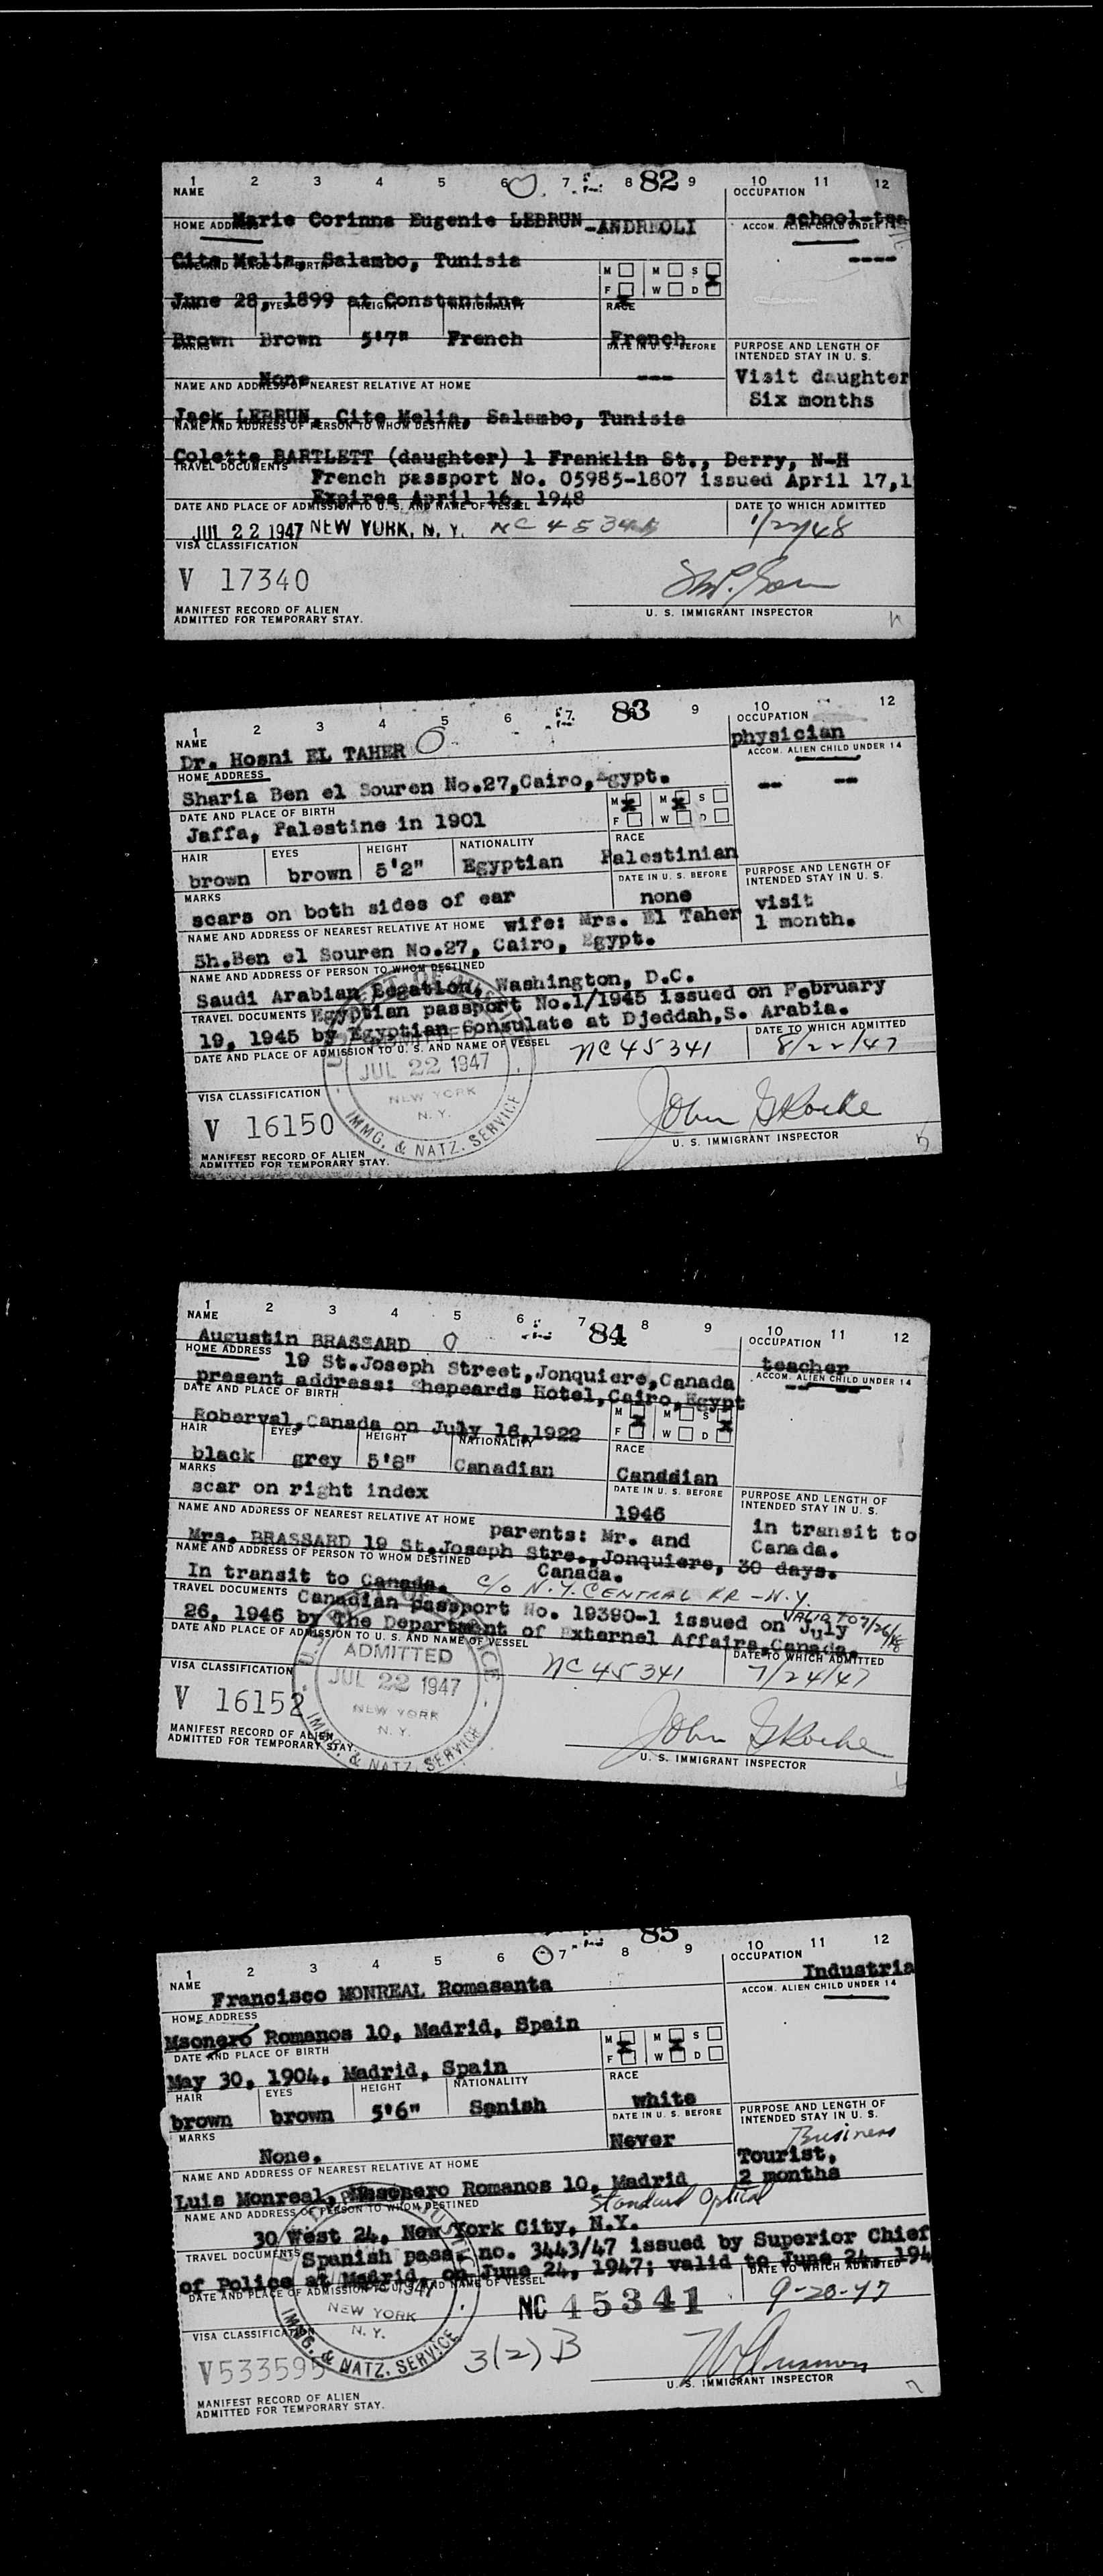 1 2 3 4 5 6 7 8 82 9 10 11 12
NAME
OCCUPATION
Marie Corinne Eugenie LEBRUN-ANDREOLI
school-tea
HOME ADDRESS
ACCOM. ALIEN CHILD UNDER 14
Cite Melia, Salambo, Tunisia
----
DATE AND PLACE OF BIRTH
M M S
F W D
June 28, 1899 at Constantine
HAIR EYES HEIGHT NATIONALITY RACE
Brown Brown 5'7" French French
MARKS
DATE IN U. S. BEFORE
PURPOSE AND LENGTH OF
INTENDED STAY IN U. S.
None
---
Visit daughter
Six months
NAME AND ADDRESS OF NEAREST RELATIVE AT HOME
Jack LEBRUN, Cite Melia, Salambo, Tunisia
NAME AND ADDRESS OF PERSON TO WHOM DESTINED
Colette BARTLETT (daughter) 1 Franklin St., Derry, N-H
TRAVEL DOCUMENTS
French passport No. 05985-1807 issued April 17,1
Expires April 16, 1948
DATE AND PLACE OF ADMISSION TO U. S. AND NAME OF VESSEL
DATE TO WHICH ADMITTED
JUL 22 1947 NEW YORK, N. Y. NC 45341
1/22/48
VISA CLASSIFICATION
V 17340
MANIFEST RECORD OF ALIEN
ADMITTED FOR TEMPORARY STAY.
U. S. IMMIGRANT INSPECTOR
1 2 3 4 5 6 7 83 9 10 12
NAME
OCCUPATION
Dr. Hosni EL TAHER
physician
HOME ADDRESS
ACCOM. ALIEN CHILD UNDER 14
Sharia Ben el Souren No.27,Cairo,Egypt.
-- --
DATE AND PLACE OF BIRTH
M M S
F W D
Jaffa, Palestine in 1901
HAIR EYES HEIGHT NATIONALITY RACE
brown brown 5'2" Egyptian Palestinian
MARKS
DATE IN U. S. BEFORE
PURPOSE AND LENGTH OF
INTENDED STAY IN U. S.
scars on both sides of ear
none
visit
1 month.
NAME AND ADDRESS OF NEAREST RELATIVE AT HOME
wife: Mrs. El Taher
Sh.Ben el Souren No.27, Cairo, Egypt.
NAME AND ADDRESS OF PERSON TO WHOM DESTINED
Saudi Arabian Legation, Washington, D.C.
TRAVEL DOCUMENTS
Egyptian passport No.1/1945 issued on February
19, 1945 by Egyptian Consulate at Djeddah,S. Arabia.
DATE AND PLACE OF ADMISSION TO U. S. AND NAME OF VESSEL
NC45341
DATE TO WHICH ADMITTED
8/22/47
JUL 22 1947
NEW YORK
N. Y.
IMMG. & NATZ. SERVICE
VISA CLASSIFICATION
V 16150
John G Roche
MANIFEST RECORD OF ALIEN
ADMITTED FOR TEMPORARY STAY.
U. S. IMMIGRANT INSPECTOR
1 2 3 4 5 6 7 84 8 9 10 11 12
NAME
OCCUPATION
Augustin BRASSARD
teacher
HOME ADDRESS
ACCOM. ALIEN CHILD UNDER 14
19 St.Joseph Street,Jonquiere,Canada
present address: Shepeards Hotel,Cairo,Egypt
DATE AND PLACE OF BIRTH
M M S
F W D
Roberval,Canada on July 16,1922
HAIR EYES HEIGHT NATIONALITY RACE
black grey 5'8" Canadian Canadian
MARKS
DATE IN U. S. BEFORE
PURPOSE AND LENGTH OF
INTENDED STAY IN U. S.
scar on right index
1946
in transit to
Canada.
30 days.
NAME AND ADDRESS OF NEAREST RELATIVE AT HOME
parents: Mr. and
Mrs. BRASSARD 19 St.Joseph Stre., Jonquiere,
Canada.
NAME AND ADDRESS OF PERSON TO WHOM DESTINED
In transit to Canada. C/o N.Y. CENTRAL RR - N.Y.
TRAVEL DOCUMENTS
Canadian passport No. 19390-1 issued on July
VALID TO 7/26/48
26, 1946 by The Department of External Affairs,Canada.
DATE AND PLACE OF ADMISSION TO U. S. AND NAME OF VESSEL
NC 45341
DATE TO WHICH ADMITTED
7/24/47
ADMITTED
JUL 22 1947
NEW YORK
N. Y.
IMMG. & NATZ. SERVICE
VISA CLASSIFICATION
V 16152
John G Roche
MANIFEST RECORD OF ALIEN
ADMITTED FOR TEMPORARY STAY.
U. S. IMMIGRANT INSPECTOR
1 2 3 4 5 6 7 8 85 9 10 11 12
NAME
OCCUPATION
Francisco MONREAL Romasanta
Industria
HOME ADDRESS
ACCOM. ALIEN CHILD UNDER 14
Msonero Romanos 10, Madrid, Spain
DATE AND PLACE OF BIRTH
M M S
F W D
May 30, 1904, Madrid, Spain
HAIR EYES HEIGHT NATIONALITY RACE
brown brown 5'6" Sanish white
MARKS
DATE IN U. S. BEFORE
PURPOSE AND LENGTH OF
INTENDED STAY IN U. S.
None.
Never
Business
Tourist,
2 months
NAME AND ADDRESS OF NEAREST RELATIVE AT HOME
Luis Monreal, Mesonero Romanos 10, Madrid
NAME AND ADDRESS OF PERSON TO WHOM DESTINED
Standard Optical
30 West 24, New York City, N.Y.
TRAVEL DOCUMENTS
Spanish pass. no. 3443/47 issued by Superior Chief
of Police at Madrid, on June 24, 1947; valid to June 24, 194
DATE AND PLACE OF ADMISSION TO U. S. AND NAME OF VESSEL
DATE TO WHICH ADMITTED
NC 45341
9-20-47
1947
NEW YORK
N. Y.
IMMG. & NATZ. SERVICE
VISA CLASSIFICATION
V533595
3(2) B
U. S. IMMIGRANT INSPECTOR
MANIFEST RECORD OF ALIEN
ADMITTED FOR TEMPORARY STAY.